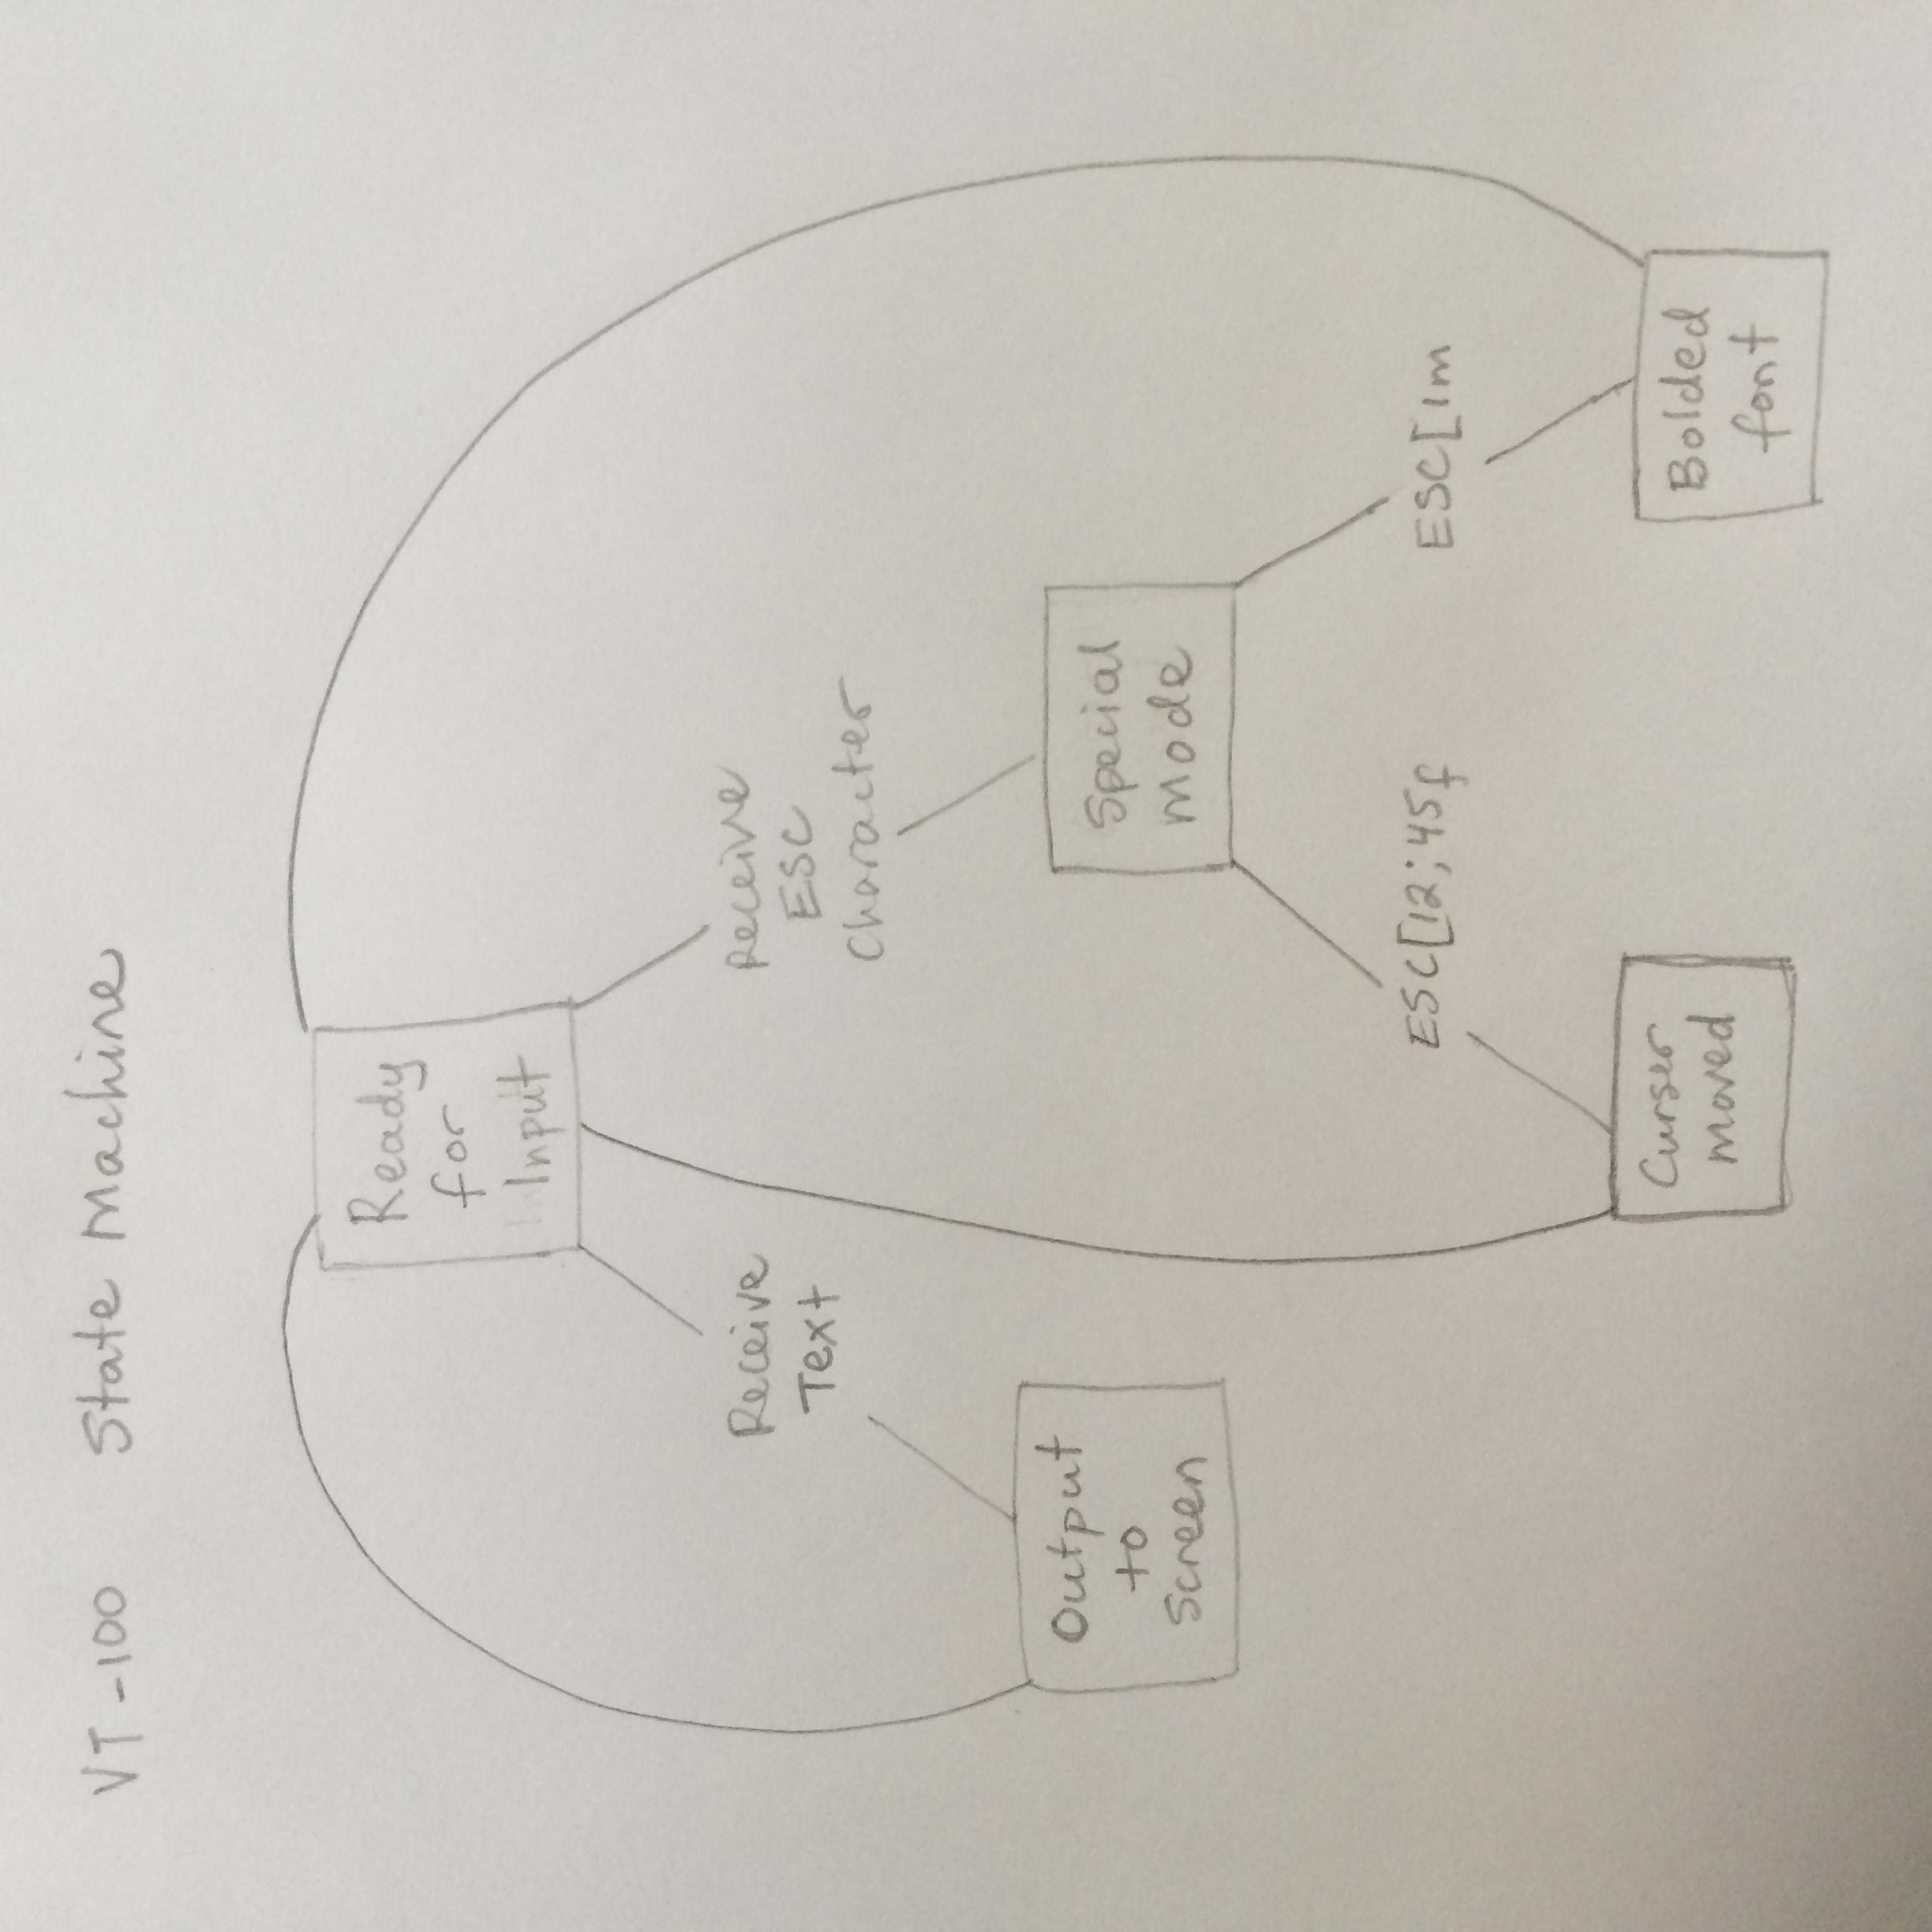 VT-100 State Machine
Ready
for
Input
Receive
Text
Receive
ESC
Character
Output
to
Screen
Special
mode
ESC[12;45f
ESC[1m
Curser
moved
Bolded
font